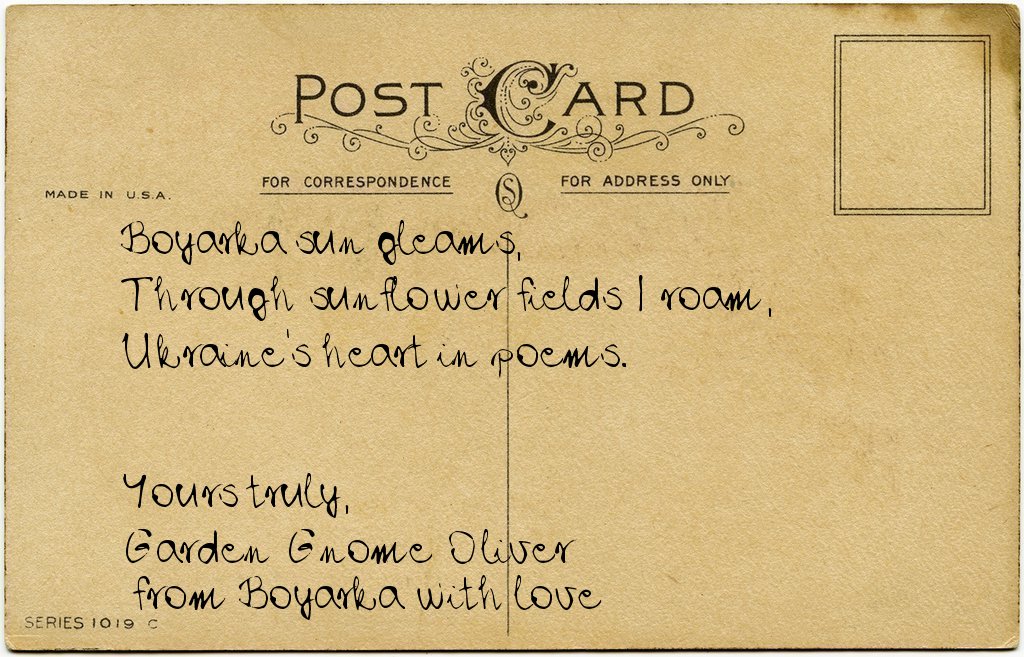 POST CARD
FOR CORRESPONDENCE
FOR ADDRESS ONLY
MADE IN U.S.A.
Boyarka sun gleams,
Through sunflower fields I roam,
Ukraine's heart in poems.
Yours truly,
Garden Gnome Oliver
from Boyarka with love
SERIES 1019 C